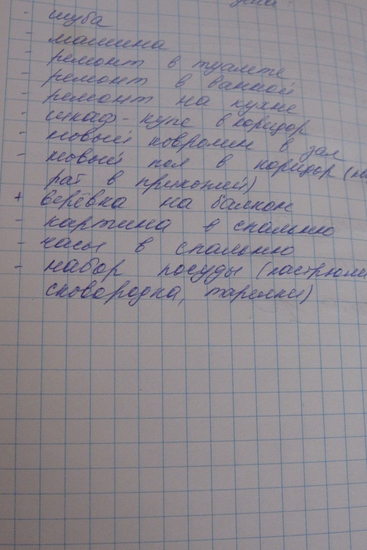 - шуба
- машина
- ремонт в туалете
- ремонт в ванной
- ремонт на кухне
- шкаф-купе в коридор
- новый ковролин в зал
- новый пол в коридор (на
рат в прихожей)
+ верёвка на балкон
- картина в спальню
- часы в спальню
- набор посуды (кастрюли
сковородка, тарелки)